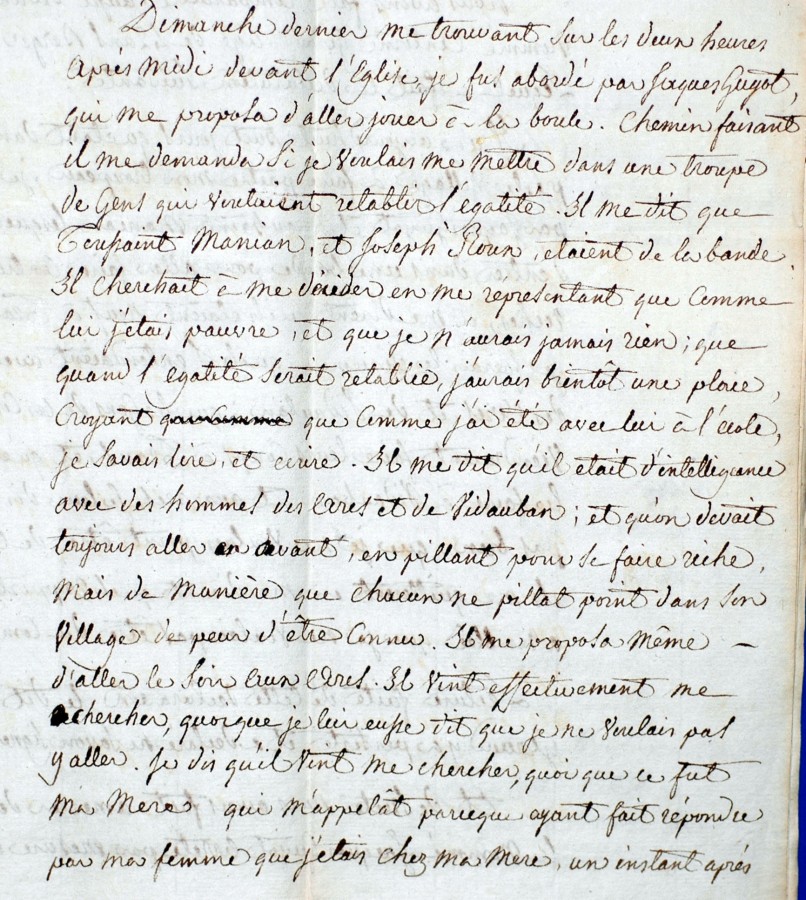 Dimanche dernier me trouvant sur les deux heures
après midi devant l'Eglise, je fus abordé par Jacques Gugot,
qui me proposa d'aller jouer à la boule. Chemin faisant
il me demanda si je voulais me mettre dans une troupe
de gens qui voulaient retablir l'égalité. Il me dit que
Toussaint Manian, et Joseph Roux, etaient de la bande.
Il cherchait à me décider en me representant que comme
lui j'etais pauvre, et que je n'aurais jamais rien; que
quand l'egalité serait retablie, j'aurais bientôt une place,
croyant que comme j'ai été avec lui à l'école,
je savais lire, et ecrire. Il me dit qu'il etait d'intelligeance
avec des hommes des arcs et de Vidauban; et qu'on devait
toujours aller en avant, en pillant pour se faire riche,
mais de manière que chacun ne pillat point dans son
village de peur d'être connu. Il me proposa même
d'aller le soir aux arcs. Il vint effectivement me
chercher, quoique je lui eusse dit que je ne voulais pas
y aller. Je dis qu'il vint me chercher, quoi que ce fut
ma mere qui m'appelât parceque ayant fait répondre
par ma femme que j'etais chez ma mere, un instant après